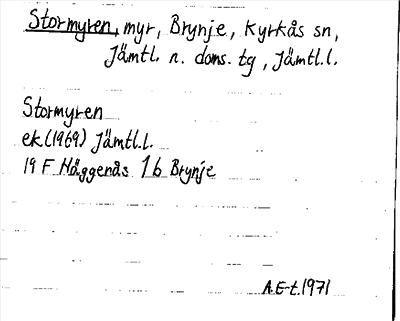 Stormyren, myr, Brynje, Kyrkås sn,
Jämtl. n. doms. tg, Jämtl.l.
Stormyren
ek (1969) Jämtl.l.
19 F Häggenås 1b Brynje
A.E-t. 1971